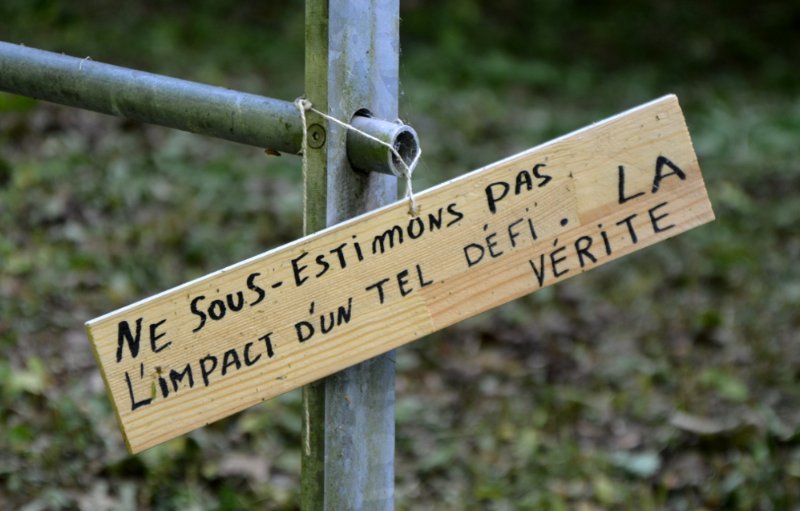 NE SOUS-ESTIMONS PAS LA
L'IMPACT D'UN TEL DÉFI. VÉRITE